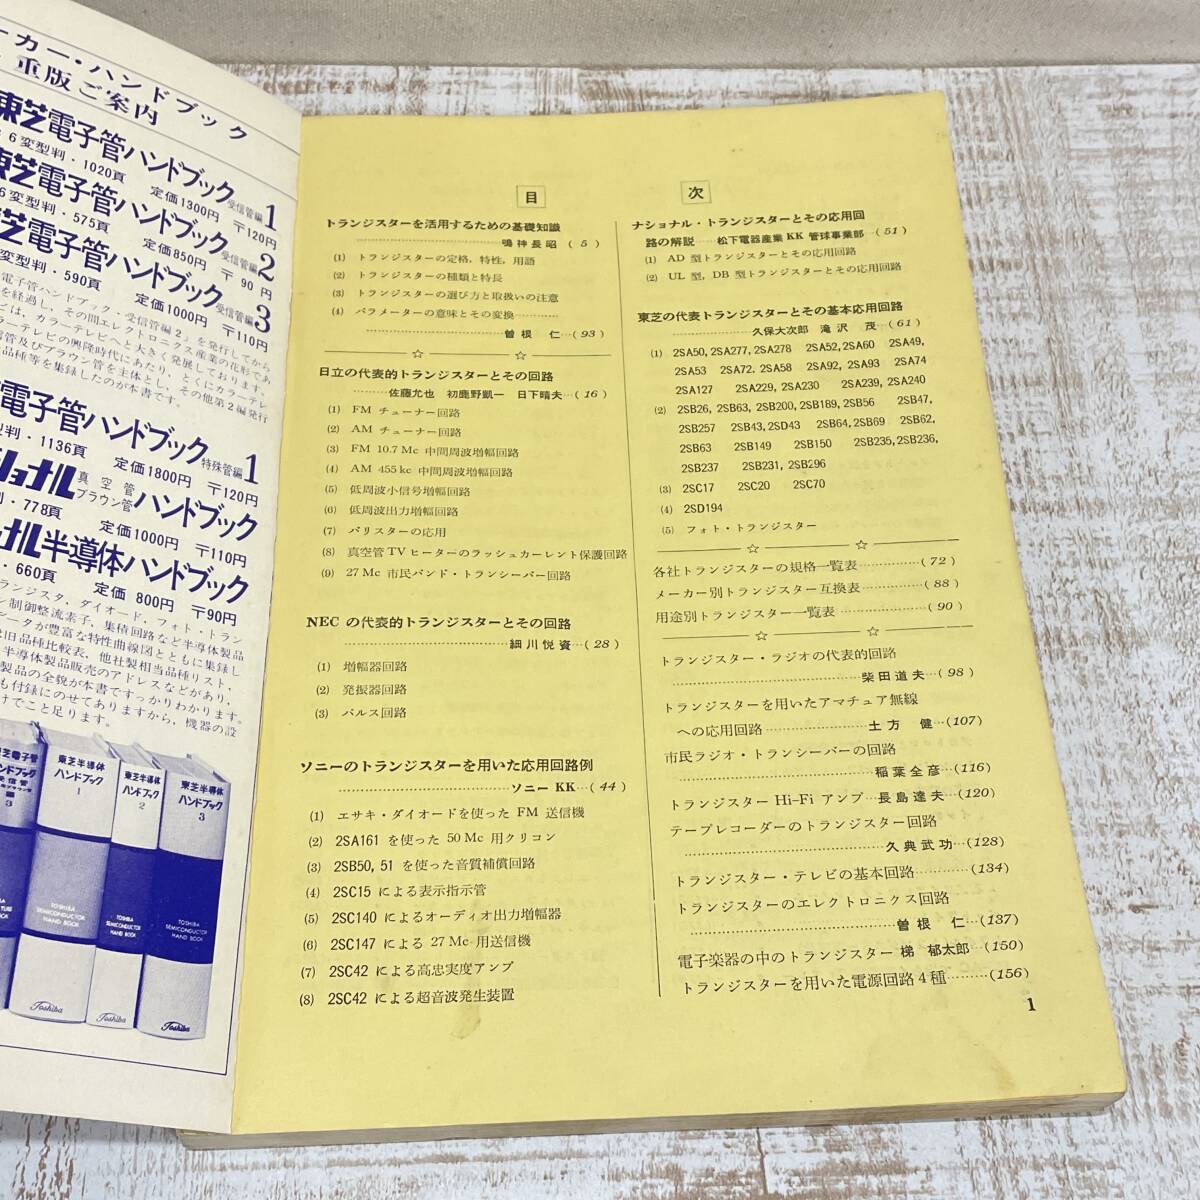 ーカー・ハンドブック
重版ご案内
東芝電子管ハンドブック 受信管編 1
6変型判・1020頁 定価1300円 〒120円
東芝電子管ハンドブック 受信管編 2
6変型判・575頁 定価850円 〒90円
芝電子管ハンドブック 受信管編 3
変型判・590頁 定価1000円 〒110円
電子管ハンドブック・受信管編2」を発行してから
を経過し、その間エレクトロニクス産業の花形であ
ビは、カラーテレビへと大きく発展しております。
信管及びブラウン管を主体とし、その他第2編発行
品種等を集録したのが本書です。
電子管ハンドブック 特殊管編 1
型判・1136頁 定価1800円 〒120円
ショナル 真空管 ブラウン管 ハンドブック
判・778頁 定価1000円 〒110円
ナル半導体ハンドブック
・660頁 定価 800円 〒90円
ランジスタ、ダイオード、フォト・トラン
ン制御整流素子、集積回路など半導体製品
データが豊富な特性曲線図とともに集録し
は旧品種比較表、他社製相当品種リスト、
半導体製品販売のアドレスなどがあり、
製品の全貌が本書ですっかりわかります。
も付録にのせてありますから、機器の設
けでこと足ります。
芝電子管
ンドブック
受信管
3
東芝半導体
ハンドブック
1
TOSHIBA
SEMICONDUCTOR
HAND BOOK
Toshiba
東芝半導体
ハンドブック
2
TOSHIBA
SEMICONDUCTOR
HAND BOOK
Toshiba
東芝半導体
ハンドブック
3
TOSHIBA
SEMICONDUCTOR
HAND BOOK
Toshiba
目 次
トランジスターを活用するための基礎知識
鳴神長昭 (5)
(1) トランジスターの定格，特性，用語
(2) トランジスターの種類と特長
(3) トランジスターの選び方と取扱いの注意
(4) パラメーターの意味とその変換…………
曽根 仁…(93)
☆ ☆
日立の代表的トランジスターとその回路
佐藤允也 初鹿野凱一 日下晴夫…(16)
(1) FM チューナー回路
(2) AM チューナー回路
(3) FM 10.7 Mc 中間周波増幅回路
(4) AM 455 kc 中間周波増幅回路
(5) 低周波小信号増幅回路
(6) 低周波出力増幅回路
(7) バリスターの応用
(8) 真空管 TV ヒーターのラッシュカーレント保護回路
(9) 27 Mc 市民バンド・トランシーバー回路
NEC の代表的トランジスターとその回路
細川悦資…(28)
(1) 増幅器回路
(2) 発振器回路
(3) パルス回路
ソニーのトランジスターを用いた応用回路例
ソニー KK…(44)
(1) エサキ・ダイオードを使った FM 送信機
(2) 2SA161 を使った 50 Mc 用クリコン
(3) 2SB50, 51 を使った音質補償回路
(4) 2SC15 による表示指示管
(5) 2SC140 によるオーディオ出力増幅器
(6) 2SC147 による 27 Mc 用送信機
(7) 2SC42 による高忠実度アンプ
(8) 2SC42 による超音波発生装置
ナショナル・トランジスターとその応用回
路の解説……松下電器産業KK 管球事業部…(51)
(1) AD 型トランジスターとその応用回路
(2) UL 型, DB 型トランジスターとその応用回路
東芝の代表トランジスターとその基本応用回路
久保大次郎 滝沢 茂…(61)
(1) 2SA50, 2SA277, 2SA278 2SA52, 2SA60 2SA49,
2SA53 2SA72, 2SA58 2SA92, 2SA93 2SA74
2SA127 2SA229, 2SA230 2SA239, 2SA240
(2) 2SB26, 2SB63, 2SB200, 2SB189, 2SB56 2SB47,
2SB257 2SB43, 2SD43 2SB64, 2SB69 2SB62,
2SB63 2SB149 2SB150 2SB235, 2SB236,
2SB237 2SB231, 2SB296
(3) 2SC17 2SC20 2SC70
(4) 2SD194
(5) フォト・トランジスター
☆ ☆
各社トランジスターの規格一覧表…………(72)
メーカー別トランジスター互換表…………(88)
用途別トランジスター一覧表………………(90)
☆ ☆
トランジスター・ラジオの代表的回路
柴田道夫…(98)
トランジスターを用いたアマチュア無線
への応用回路……………土方 健…(107)
市民ラジオ・トランシーバーの回路
稲葉全彦…(116)
トランジスター Hi-Fi アンプ…長島達夫…(120)
テープレコーダーのトランジスター回路
久典武功…(128)
トランジスター・テレビの基本回路………(134)
トランジスターのエレクトロニクス回路
曽根 仁…(137)
電子楽器の中のトランジスター 梯 郁太郎…(150)
トランジスターを用いた電源回路4種………(156)
1